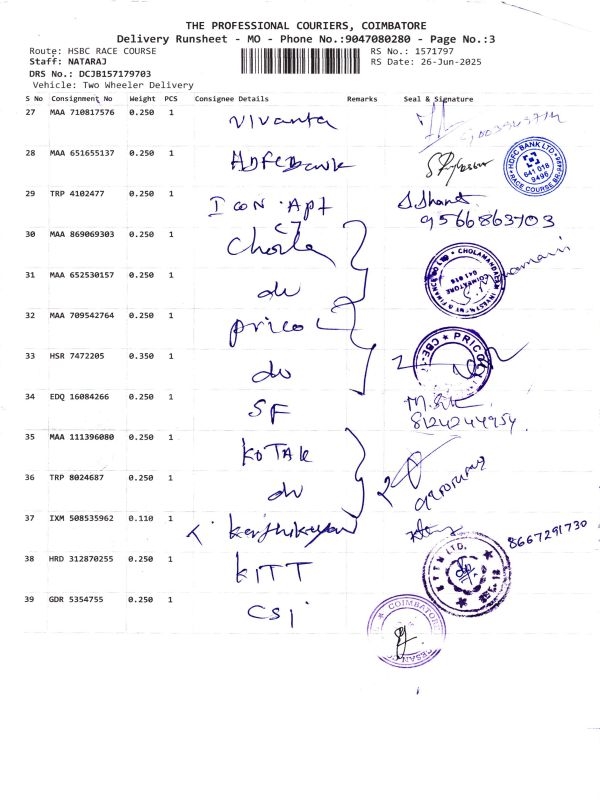 THE PROFESSIONAL COURIERS, COIMBATORE
Delivery Runsheet - MO - Phone No.:9047080280 - Page No.:3
Route: HSBC RACE COURSE RS No.: 1571797
Staff: NATARAJ RS Date: 26-Jun-2025
DRS No.: DCJB157179703
Vehicle: Two Wheeler Delivery
S No Consignment No Weight PCS Consignee Details Remarks Seal & Signature
27 MAA 710817576 0.250 1 Vivanta
28 MAA 651655137 0.250 1 HDFC Bank HDFC BANK LTD 641 018 RACE COURSE
29 TRP 4102477 0.250 1 ICON Apt 9566863703
30 MAA 869069303 0.250 1 Chola CHOLAMANDALAM INVESTMENT & FINANCE CO LTD COIMBATORE 641 018
31 MAA 652530157 0.250 1 do
32 MAA 709542764 0.250 1 prico PRICOL CBE
33 HSR 7472205 0.350 1 do
34 EDQ 16084266 0.250 1 SF 8124244954
35 MAA 111396080 0.250 1 KOTAK
36 TRP 8024687 0.250 1 do
37 IXM 508535962 0.110 1 Karthikeyan 8667291730
38 HRD 312870255 0.250 1 KITT LTD.
39 GDR 5354755 0.250 1 CSI COIMBATORE